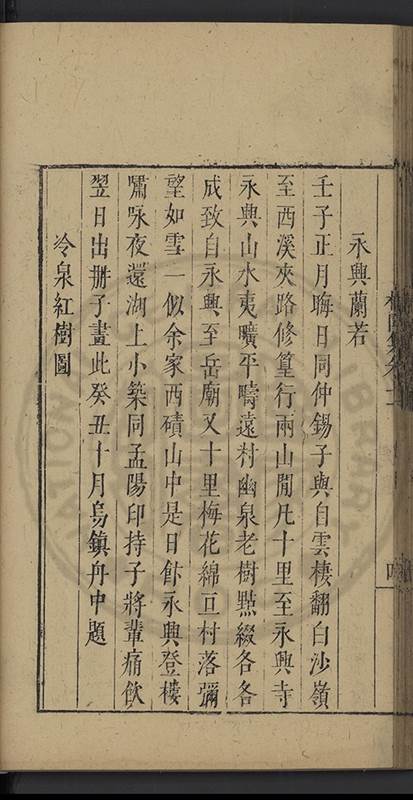 永興蘭若
壬子正月晦日同仲錫子與自雲棲翻白沙嶺
至西溪夾路修篁行兩山間凡十里至永興寺
永興山水夷曠平疇遠村幽泉老樹點綴各各
成致自永興至岳廟又十里梅花綿亙村落彌
望如雪一似余家西磧山中是日飰永興登樓
嘯咏夜還湖上小築同孟陽印持子將輩痛飲
翌日出冊子畫此癸丑十月烏鎮舟中題
冷泉紅樹圖